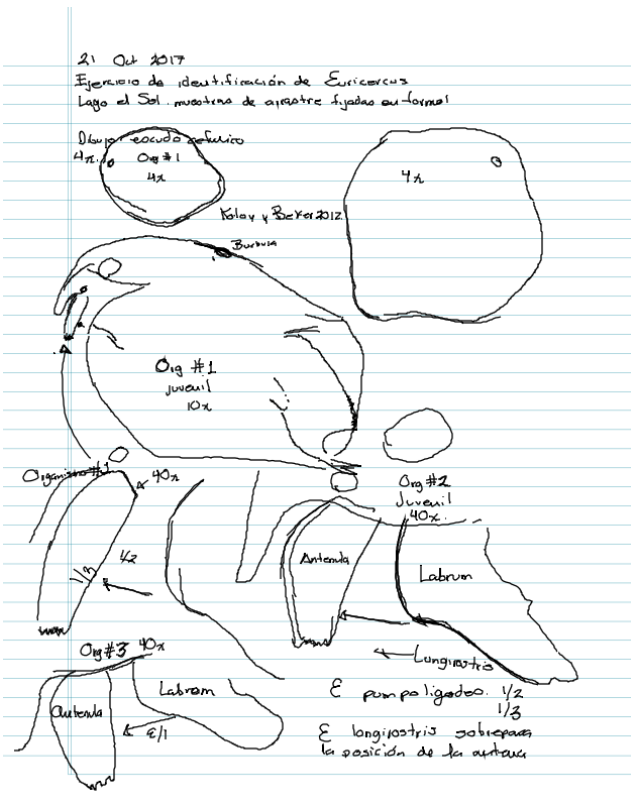 21 Oct 2017
Ejercicio de identificación de Euricercus
Lago el Sol. muestras de arrastre fijadas en formol
Dibujo escudo cefalico
4x.
Org #1
4x
4x
Kotov y Bekker 2012
Burbuja
Org #1
juvenil
10x
Organismo #1
40x
1/2
1/3
Org #2
Juvenil
40x.
Antenula
Labrum
Longirostris
Org #3 40x
Labrum
antenula
E pompoligodeo. 1/2
1/3
E longirostris sobrepasa
la posición de la antena